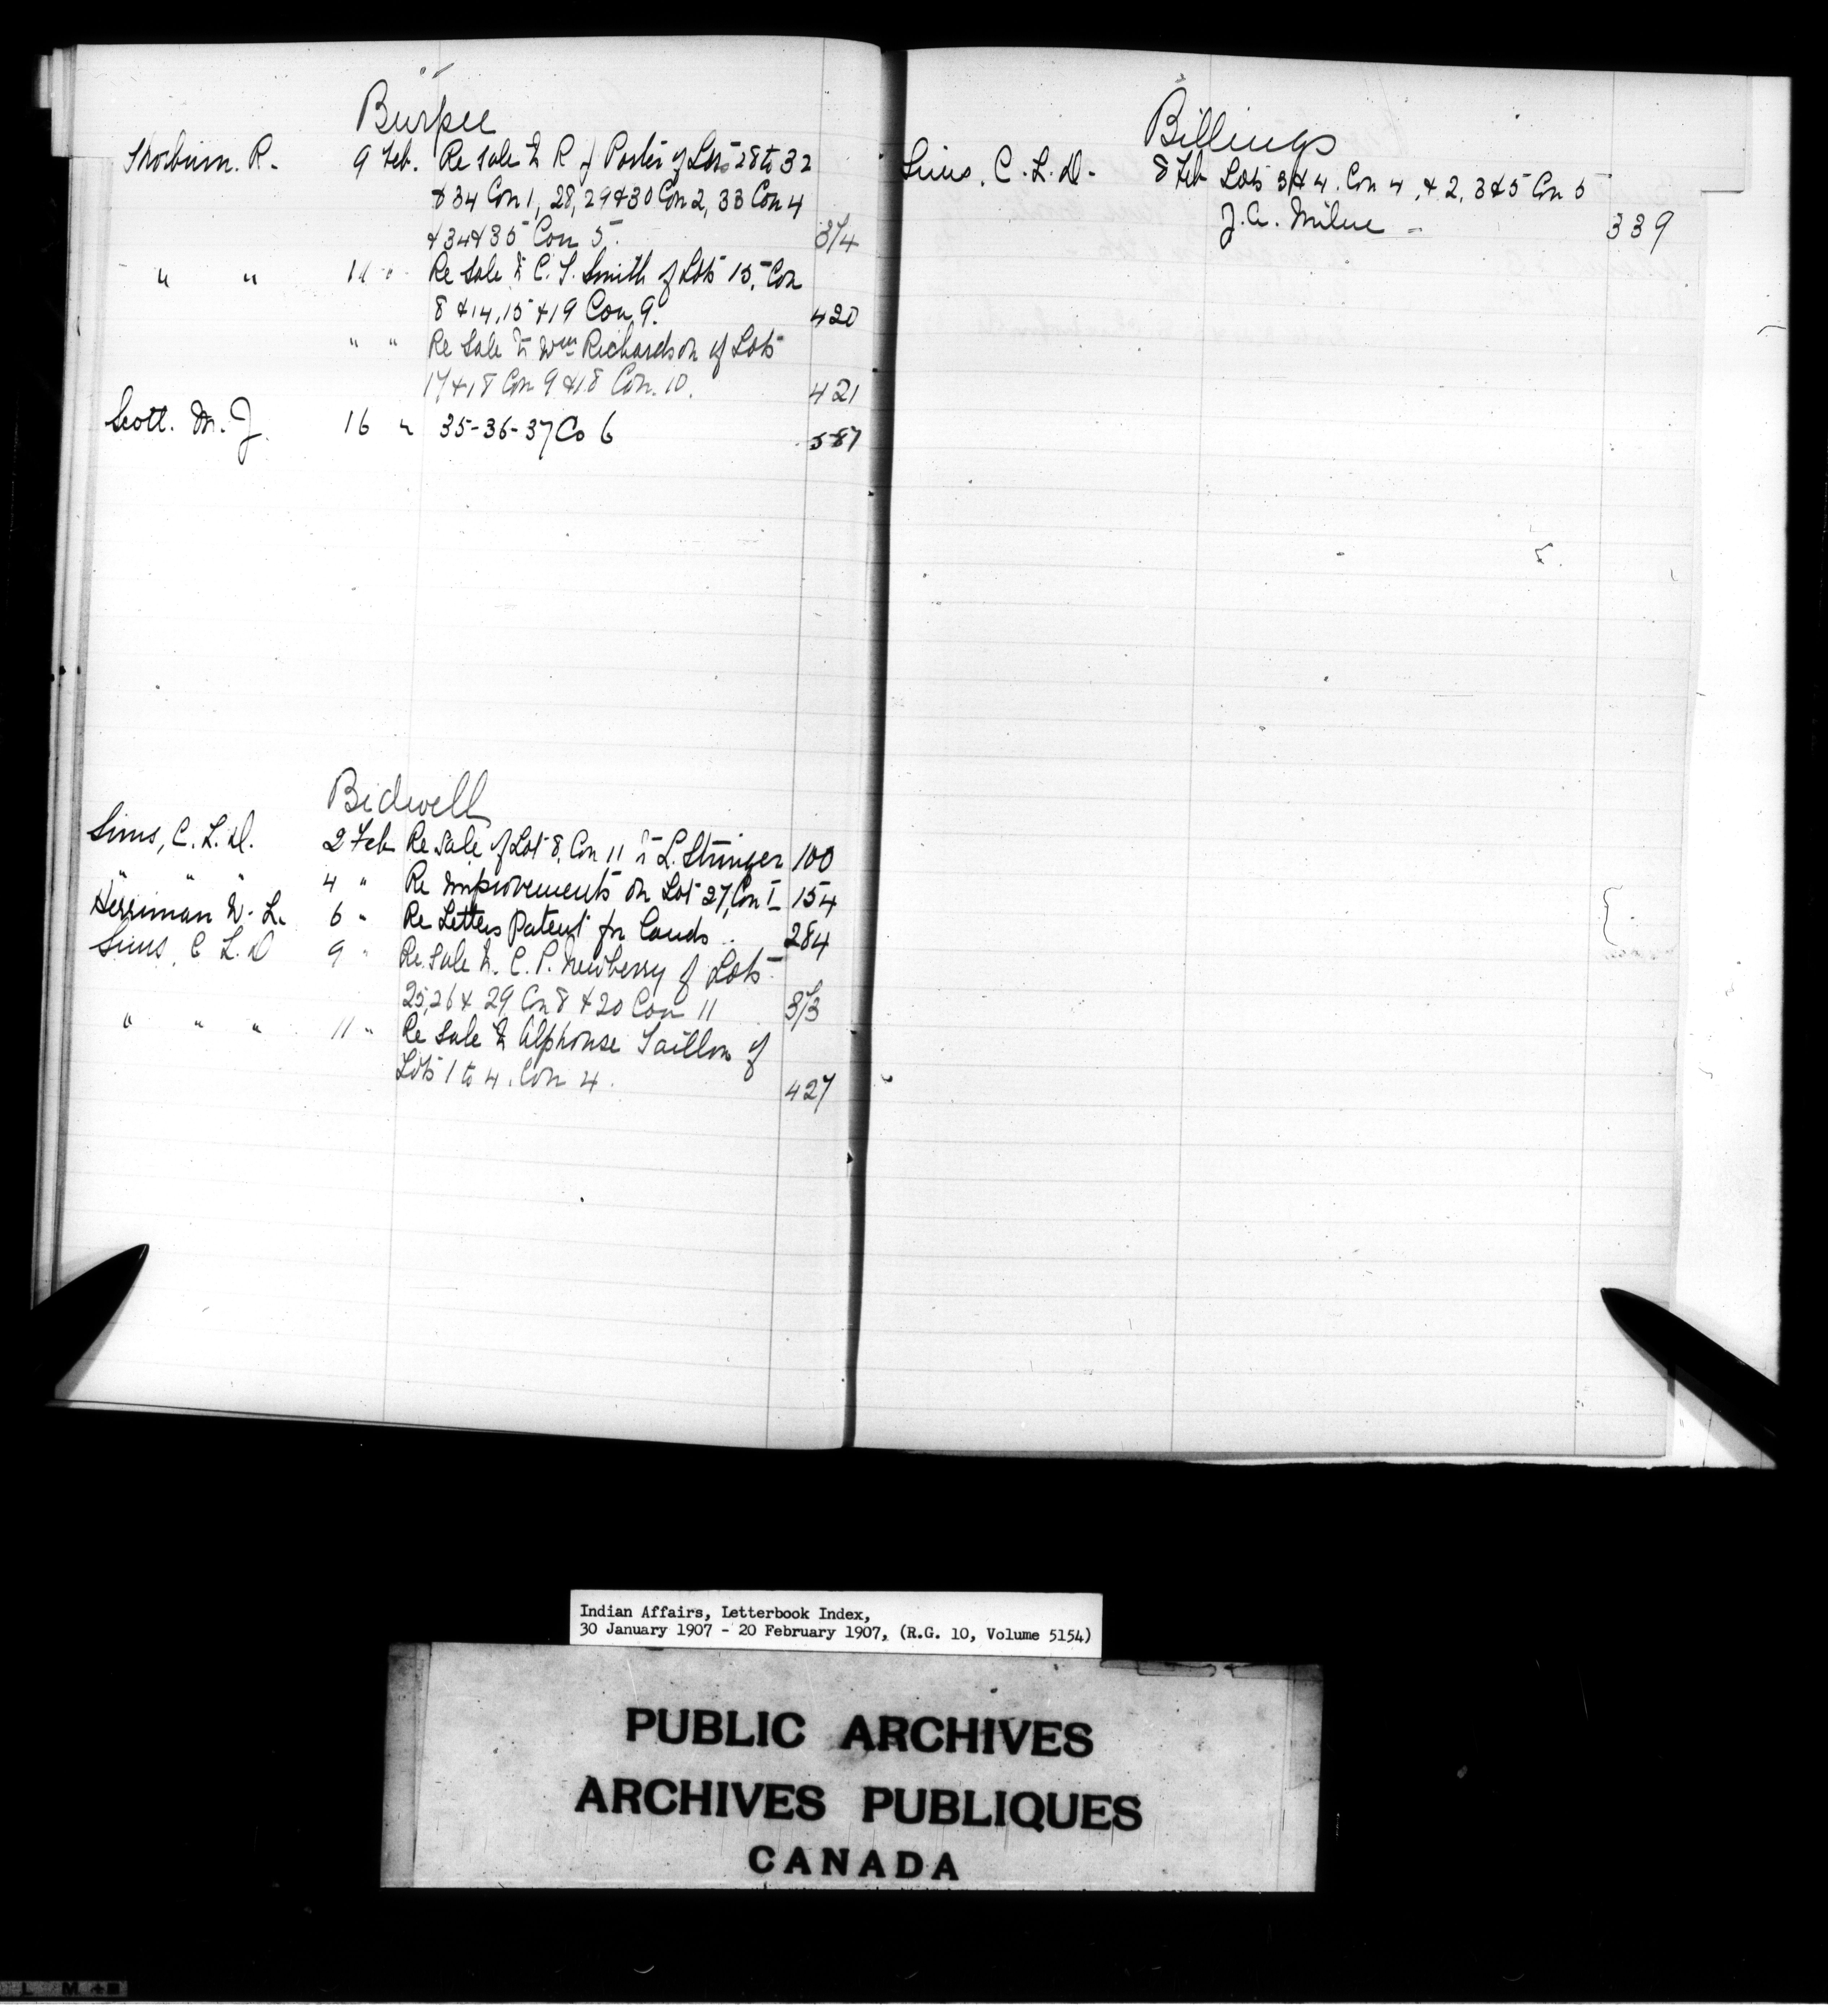 Burpee
Thorburn. R. 9 Feb. Re Sale to R. J. Porter of Lots 28 to 32
& 34 Con 1, 28, 29 & 30 Con 2, 33 Con 4
& 34 & 35 Con 5. 374
" " 11 " Re Sale to C. T. Smith of Lots 15, Con
8 & 14, 15 & 19 Con. 9. 420
" " Re Sale to Wm Richardson of Lots
17 & 18 Con 9 & 18 Con. 10. 421
Scott. M. J. 16 " 35-36-37 Co 6 587
Bidwell
Sims, C. L. D. 2 Feb Re Sale of Lot 8, Con 11 to L. Stringer 100
" " " 4 " Re Improvements on Lot 27, Con I 154
Herriman W. L. 6 " Re Letters Patent for Lands .. 284
Sims, C L. D 9 " Re Sale to C. P. Newberry of Lots
25, 26 & 29 Con 8 & 20 Con 11 373
" " " 11 " Re Sale to Alphonse Taillon of
Lots 1 to 4, Con 4. 427
Billings
Sims, C. L. D. 8 Feb Lots 3 & 4. Con 4, & 2, 3 & 5 Con 5
J. A. Milne - 339
Indian Affairs, Letterbook Index,
30 January 1907 - 20 February 1907, (R.G. 10, Volume 5154)
PUBLIC ARCHIVES
ARCHIVES PUBLIQUES
CANADA